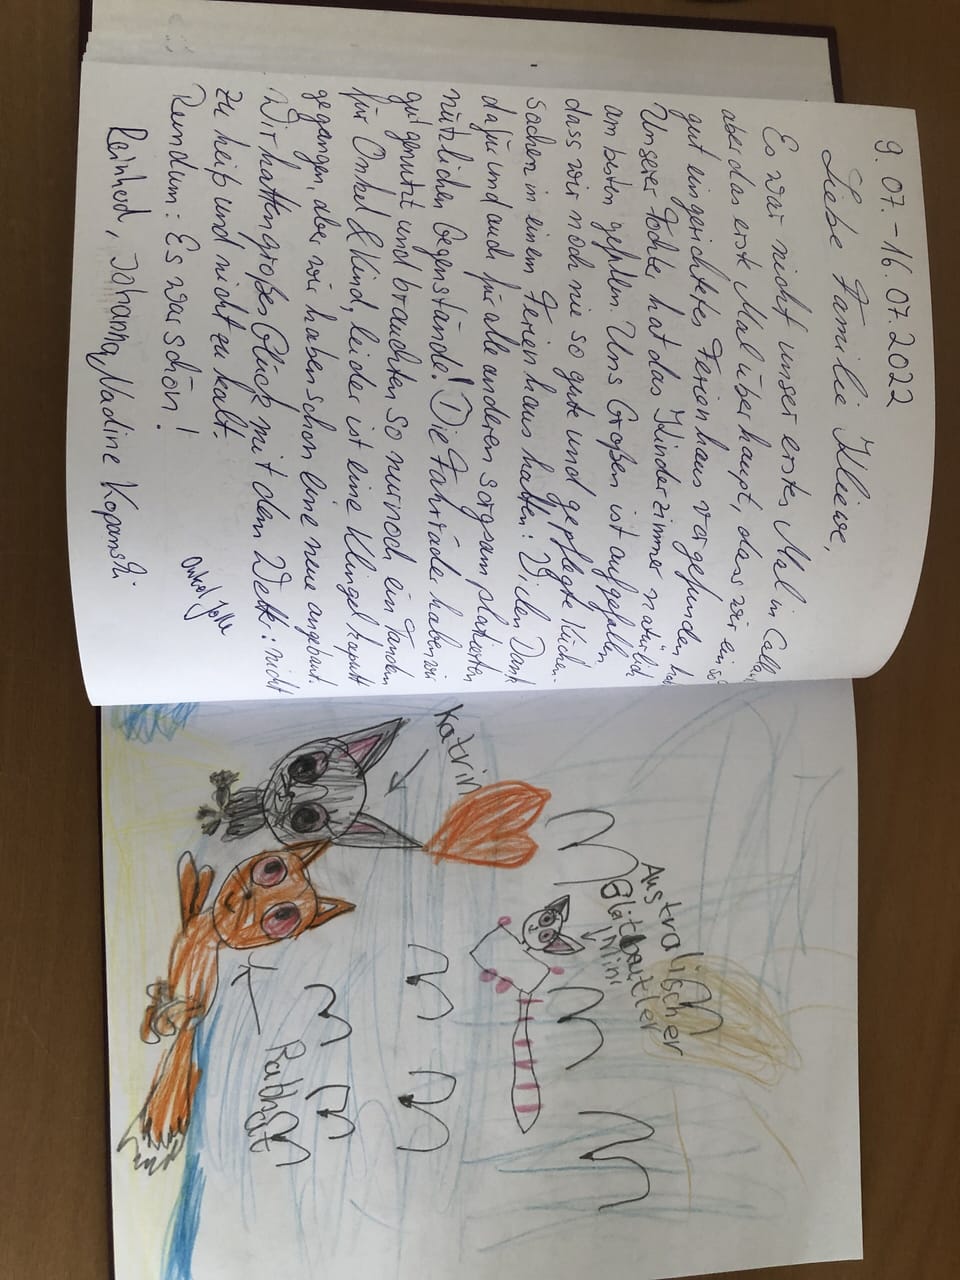 9.07.-16.07.2022
Liebe Familie Kliewe,
Es war nicht unser erstes Mal in
aber das erste Mal überhaupt, dass wir ein so
gut eingerichtetes Ferienhaus vorgefunden
Unserer Tochter hat das Kinderzimmer natürlich
am besten gefallen. Uns Großen ist aufgefallen
dass wir noch nie so gute und gepflegte Küchen-
sachen in einem Ferienhaus hatten: Vielen Dank
dafür und auch für alle anderen sorgsam platzierten
nützlichen Gegenstände! Die Fahrräder haben wir
gut genutzt und brauchten so nur noch ein Tandem
für Onkel & Kind, leider ist eine Klingel kaputt
gegangen, aber wir haben schon eine neue angebaut.
Wir hatten großes Glück mit dem Wetter: nicht
zu heiß und nicht zu kalt.
Rundum: Es war schön!
Reinhard, Johanna, Nadine Kopanski
Onkel
Australischer
Gleitbeutler
Mini
Katrin